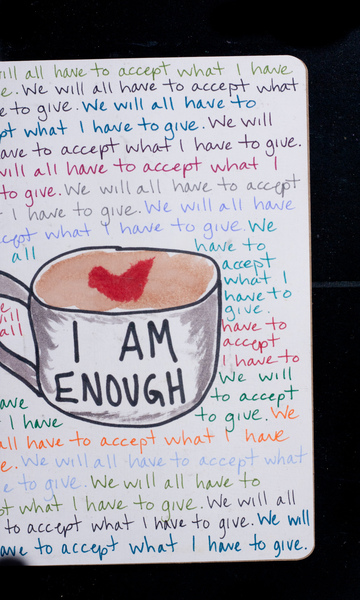 will all have to accept what I have
e. We will all have to accept what
e to give. We will all have to
pt what I have to give. We will
ave to accept what I have to give.
will all have to accept what I
to give. We will all have to accept
I have to give. We will all have
ccept what I have to give. We
all have to
accept
what I
have to
give.
e
will have to
all accept
I have to
I AM
ENOUGH
We will
ave to accept
I have to give. We
all have to accept what I have
e. We will all have to accept what
e to give. We will all have to
pt what I have to give. We will all
to accept what I have to give. We will
ave to accept what I have to give.